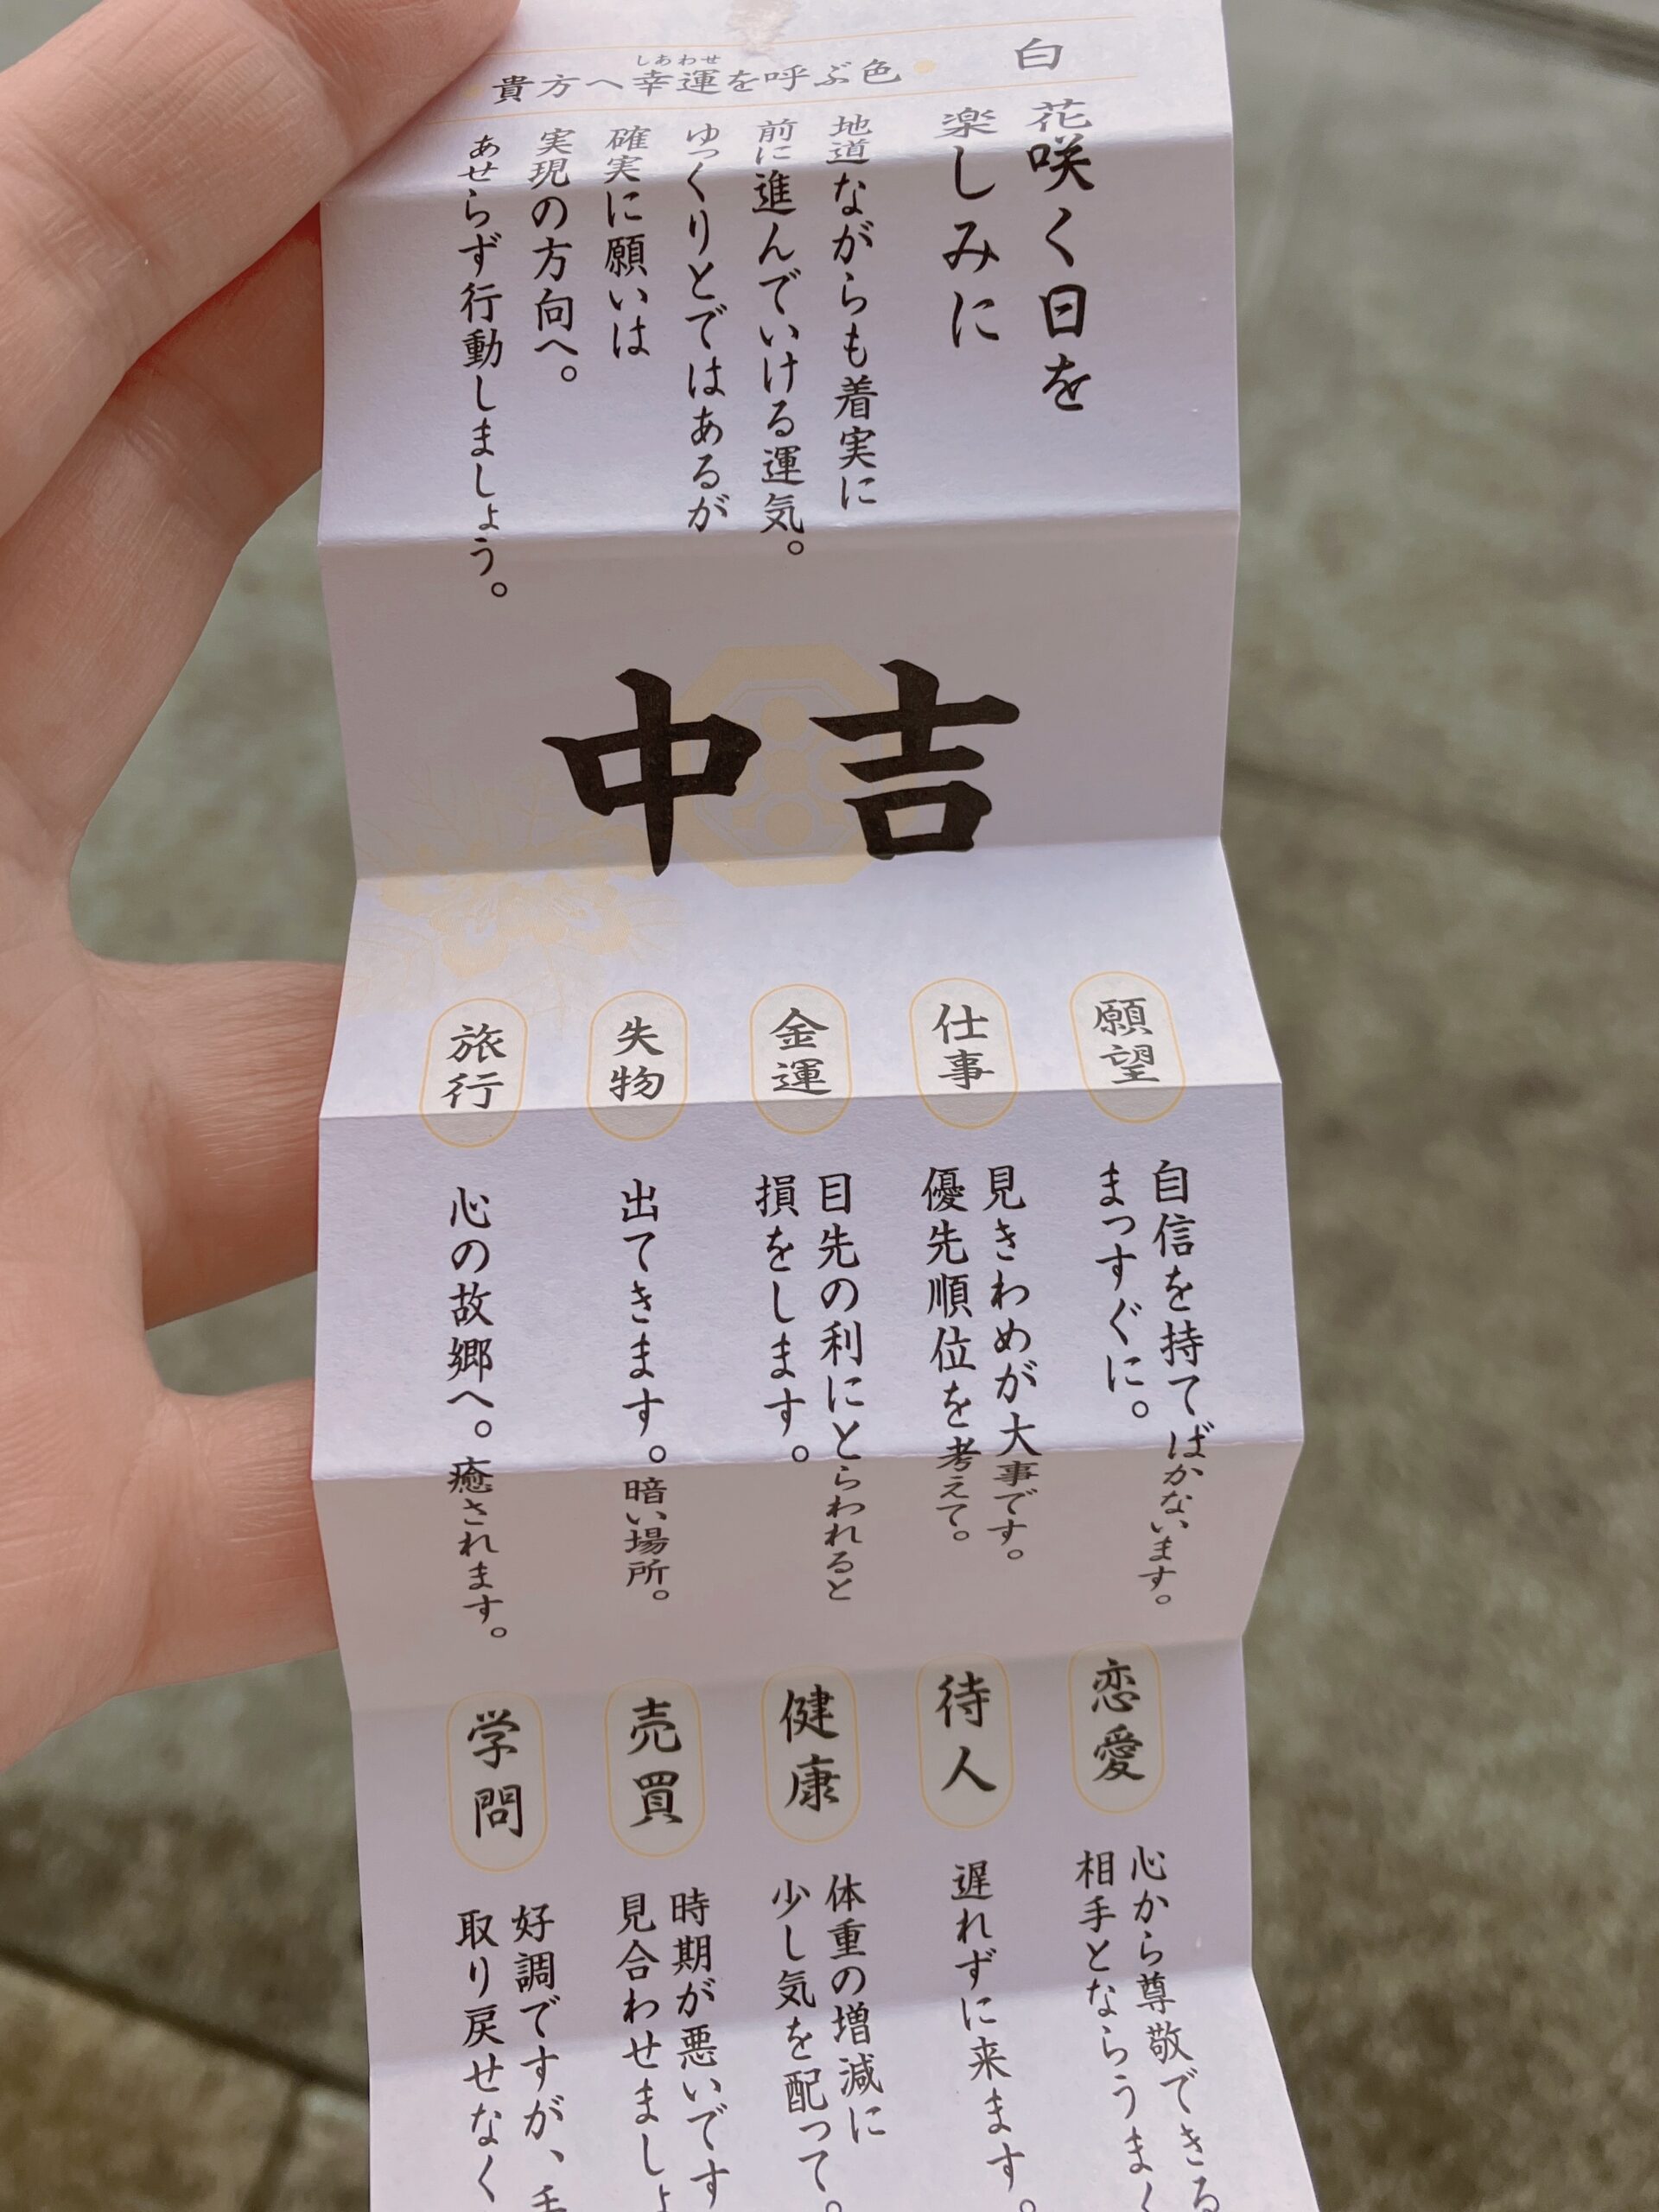 貴方へ幸運を呼ぶ色
しあわせ
白
花咲く日を
楽しみに
地道ながらも着実に
前に進んでいける運気。
ゆっくりとではあるが
確実に願いは
実現の方向へ。
あせらず行動しましょう。
中吉
願望
自信を持てばかないます。
まっすぐに。
仕事
見きわめが大事です。
優先順位を考えて。
金運
目先の利にとらわれると
損をします。
失物
出てきます。暗い場所。
旅行
心の故郷へ。癒されます。
恋愛
心から尊敬できる
相手とならうまく
待人
遅れずに来ます。
健康
体重の増減に
少し気を配って。
売買
時期が悪いです
見合わせましょ
学問
好調ですが、
取り戻せなく